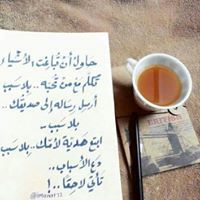 حاول أن تُباغت الأشياء
تكلم مع من تحبه .. بلا سبب
أرسل رسالة إلى صديقك ..
بلا سبب ..
ابتع هدية لأمك .. بلا سبب
دع الأسباب ..
تأتي لاحقًا .. !